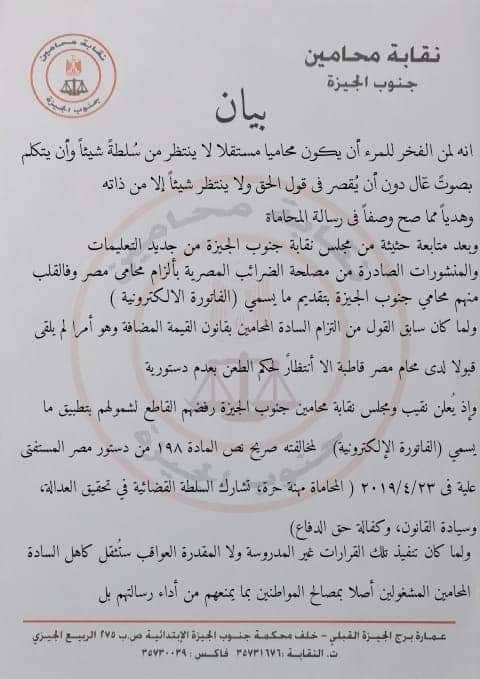 نقابة محامين
جنوب الجيزة
نقابة محامين
جنوب الجيزة
بيان
انه لمن الفخر للمرء أن يكون محاميا مستقلا لا ينتظر من سُلطةً شيئاً وأن يتكلم
بصوتً عَال دون أن يُقصر فى قول الحق ولا ينتظر شيئاً إلا من ذاته
وهدياً مما صح وصفاً فى رسالة المحاماة
وبعد متابعة حثيثة من مجلس نقابة جنوب الجيزة من جديد التعليمات
والمنشورات الصادرة من مصلحة الضرائب المصرية بألزام محامى مصر وفالقلب
منهم محامي جنوب الجيزة بتقديم ما يسمي (الفاتورة الالكترونية )
ولما كان سابق القول من التزام السادة المحامين بقانون القيمة المضافة وهو أمرا لم يلقى
قبولا لدى محام مصر قاطبة الا أنتظاراً لحكم الطعن بعدم دستورية
وإذ يُعلن نقيب ومجلس نقابة محامين جنوب الجيزة رفضهم القاطع لشمولهم بتطبيق ما
يسمي (الفاتورة الإلكترونية) لمخالفته صريح نص المادة ١٩٨ من دستور مصر المستفتى
علية فى ٢٠١٩/٤/٢٣ ( المحاماة مهنة حرة، تشارك السلطة القضائية في تحقيق العدالة،
وسيادة القانون، وكفالة حق الدفاع)
ولما كان تنفيذ تلك القرارات غير المدروسة ولا المقدرة العواقب ستُثقل كاهل السادة
المحامين المشغولين أصلا بمصالح المواطنين بما يمنعهم من أداء رسالتهم بل
عمارة برج الجيزة القبلي - خلف محكمة جنوب الجيزة الإبتدائية ص.ب ٢٧٥ الربيع الجيزي
ت. النقابة : ٣٥٧٣١٦٧٦ فاكس : ٣٥٧٣٠٠٣٩